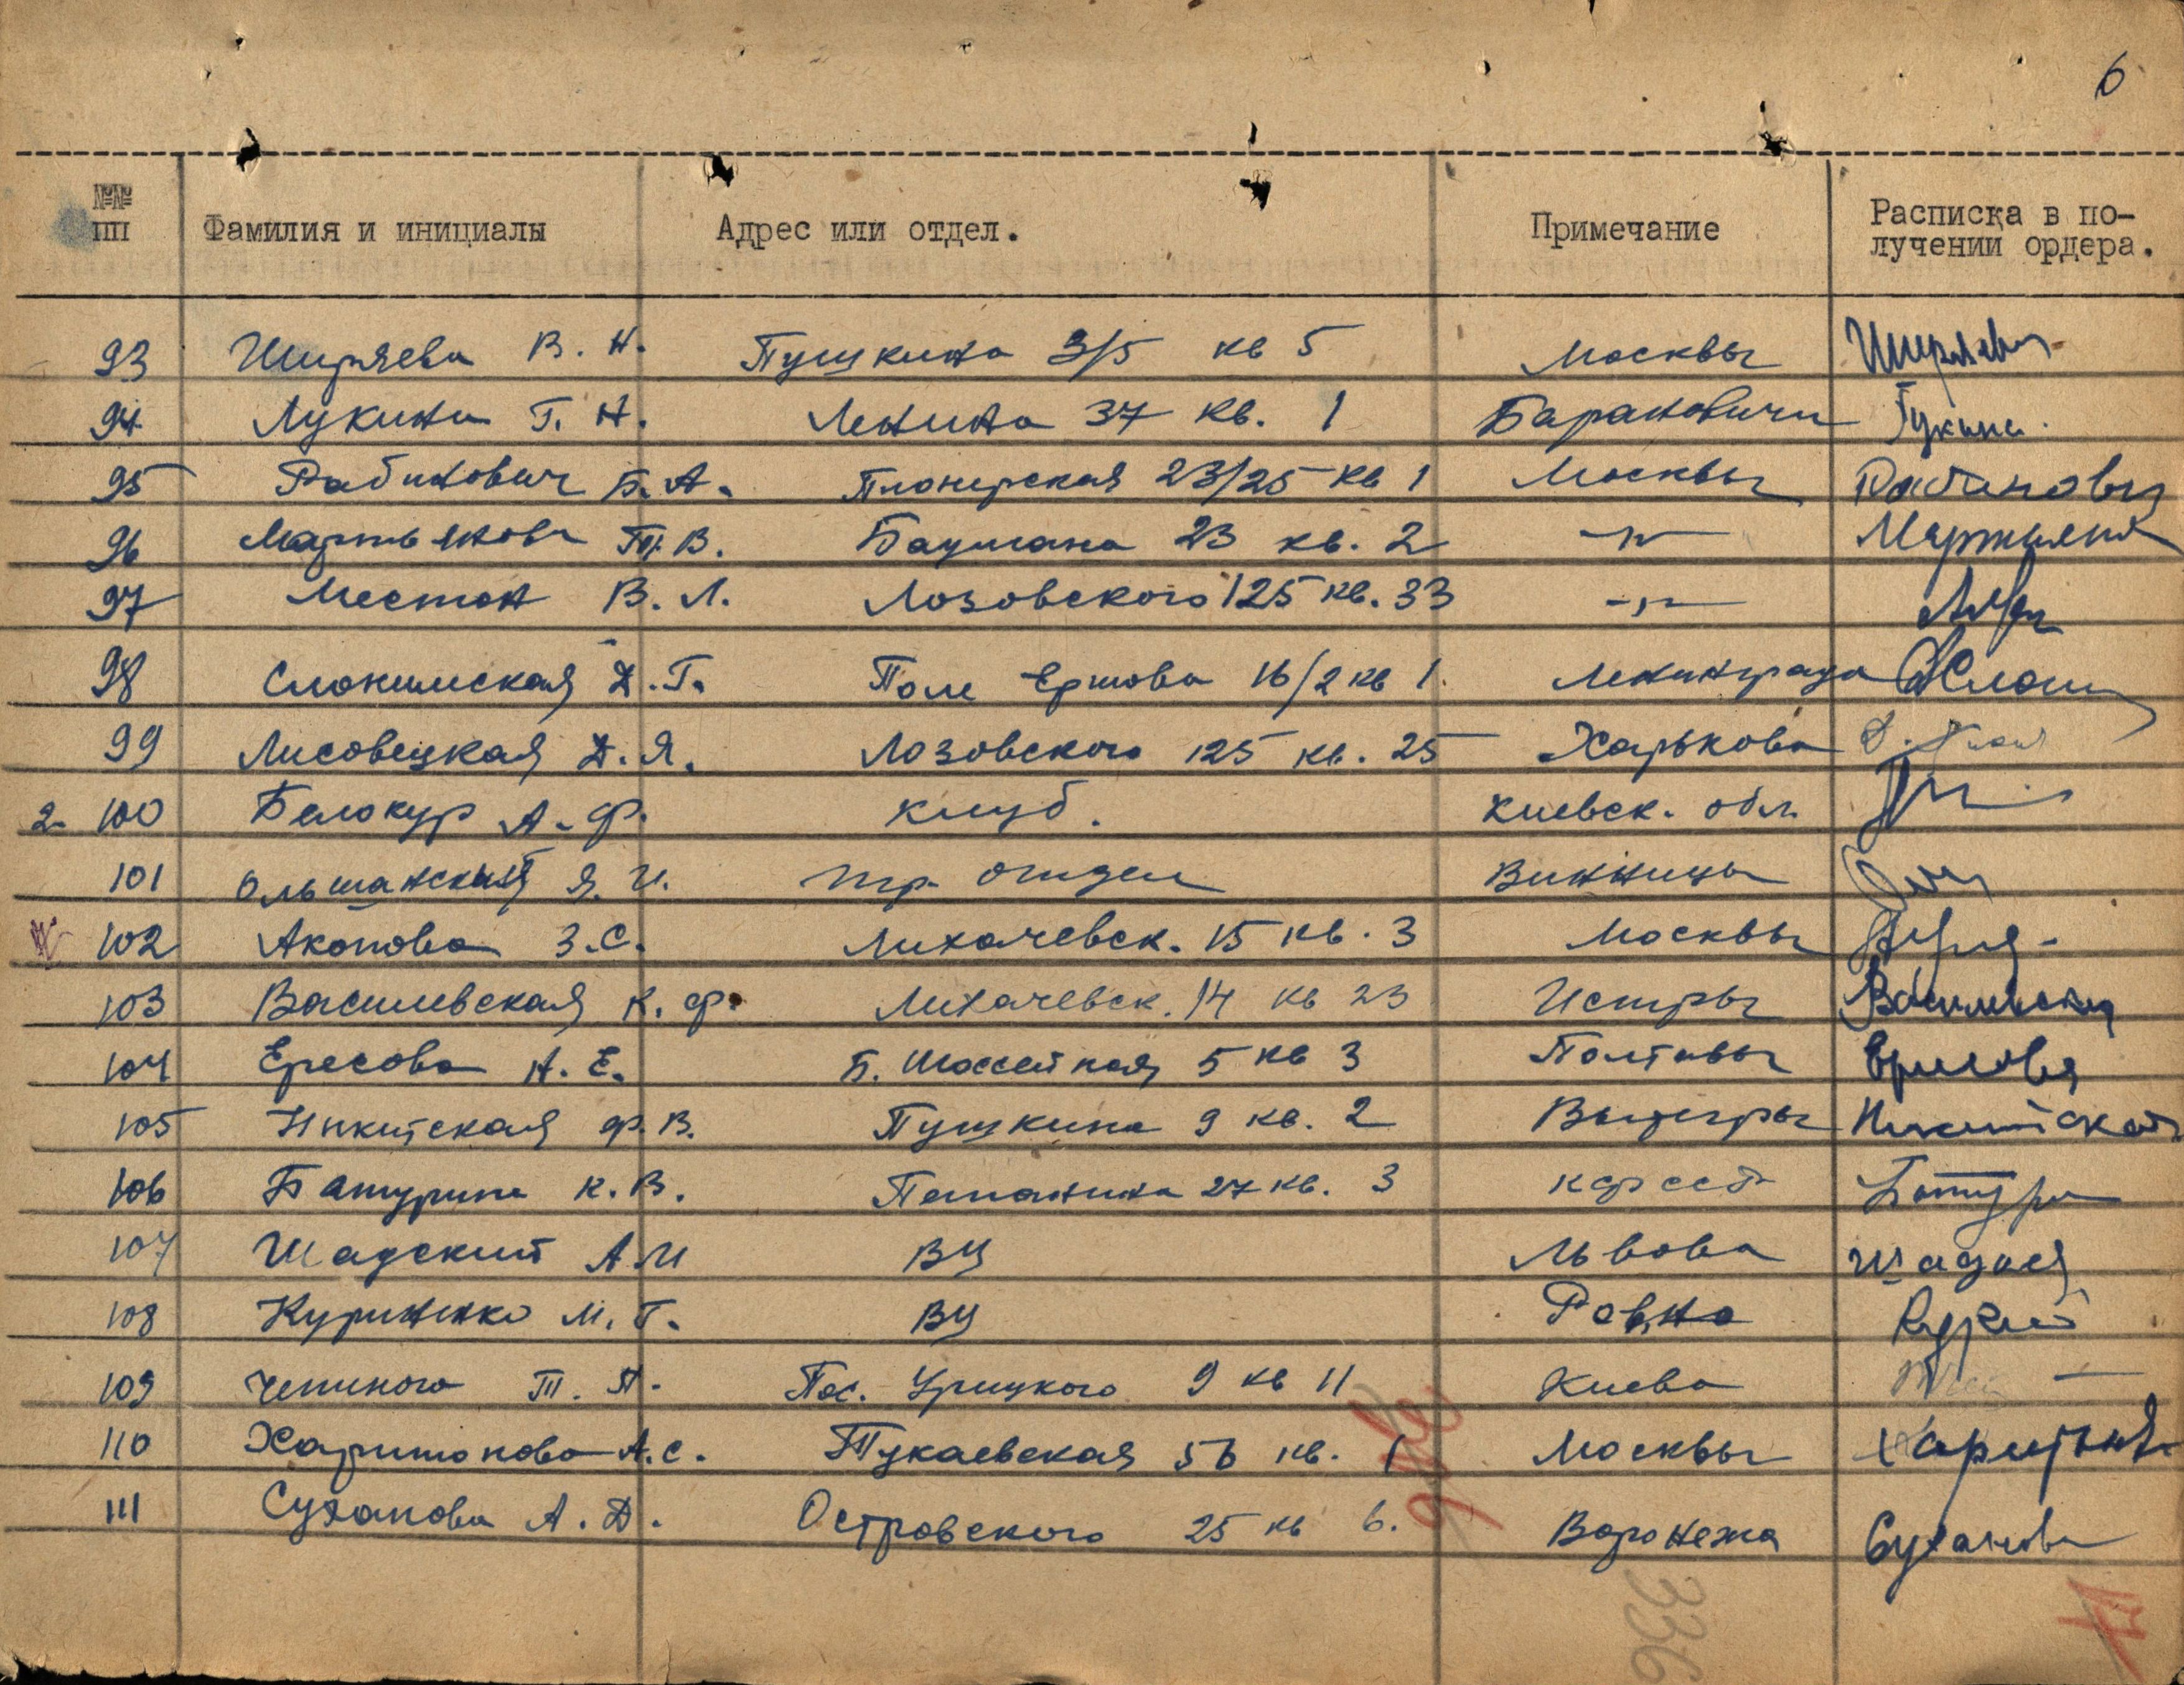 6
№№ пп Фамилия и инициалы Адрес или отдел. Примечание Расписка в по-
лучении ордера.
93 Ширяева В. Н. Пушкина 3/5 кв 5 Москвы Ширяева
94 Лукина Г. Н. Ленина 37 кв. 1 Барановичи
95 Рабинович Б. А. Пионерская 23/25 кв 1 Москвы Рабинович
96 Мартьянова В. Баумана 23 кв. 2 -"-
97 Местон В. Л. Лозовского 125 кв. 33 -"-
98 Д. Г. Поле Ершова 16/2 кв 1. Ленинграда
99 Лисовецкая Д. Я. Лозовского 125 кв. 25 Харькова
2- 100 Белокур А. Ф. клуб. Киевск. обл
101 Ольшанский Я. И. отдел Винницы
102 Акопова З. С. Лихачевск. 15 кв. 3 Москвы
103 Василевская К. Ф. Лихачевск. 14 кв 23 Истры Василевская
104 Ересова А. Е. Б. Шоссейная 5 кв 3 Полтавы Ересова
105 Никитская Ф. В. Пушкина 9 кв. 2 Вытегры Никитская
106 Батурина К. В. 27 кв. 3 Батури
107 Шадский А. И ВЦ Львова
108 Куриненко М. Г. ВЦ Ровно
109 Т. П. Пос. Урицкого 9 кв 11 Киева
110 Харитонова А. С. Тукаевская 56 кв. 1 Москвы
111 Суханова А. Д. Островского 25 кв 6. Воронежа Суханова
336